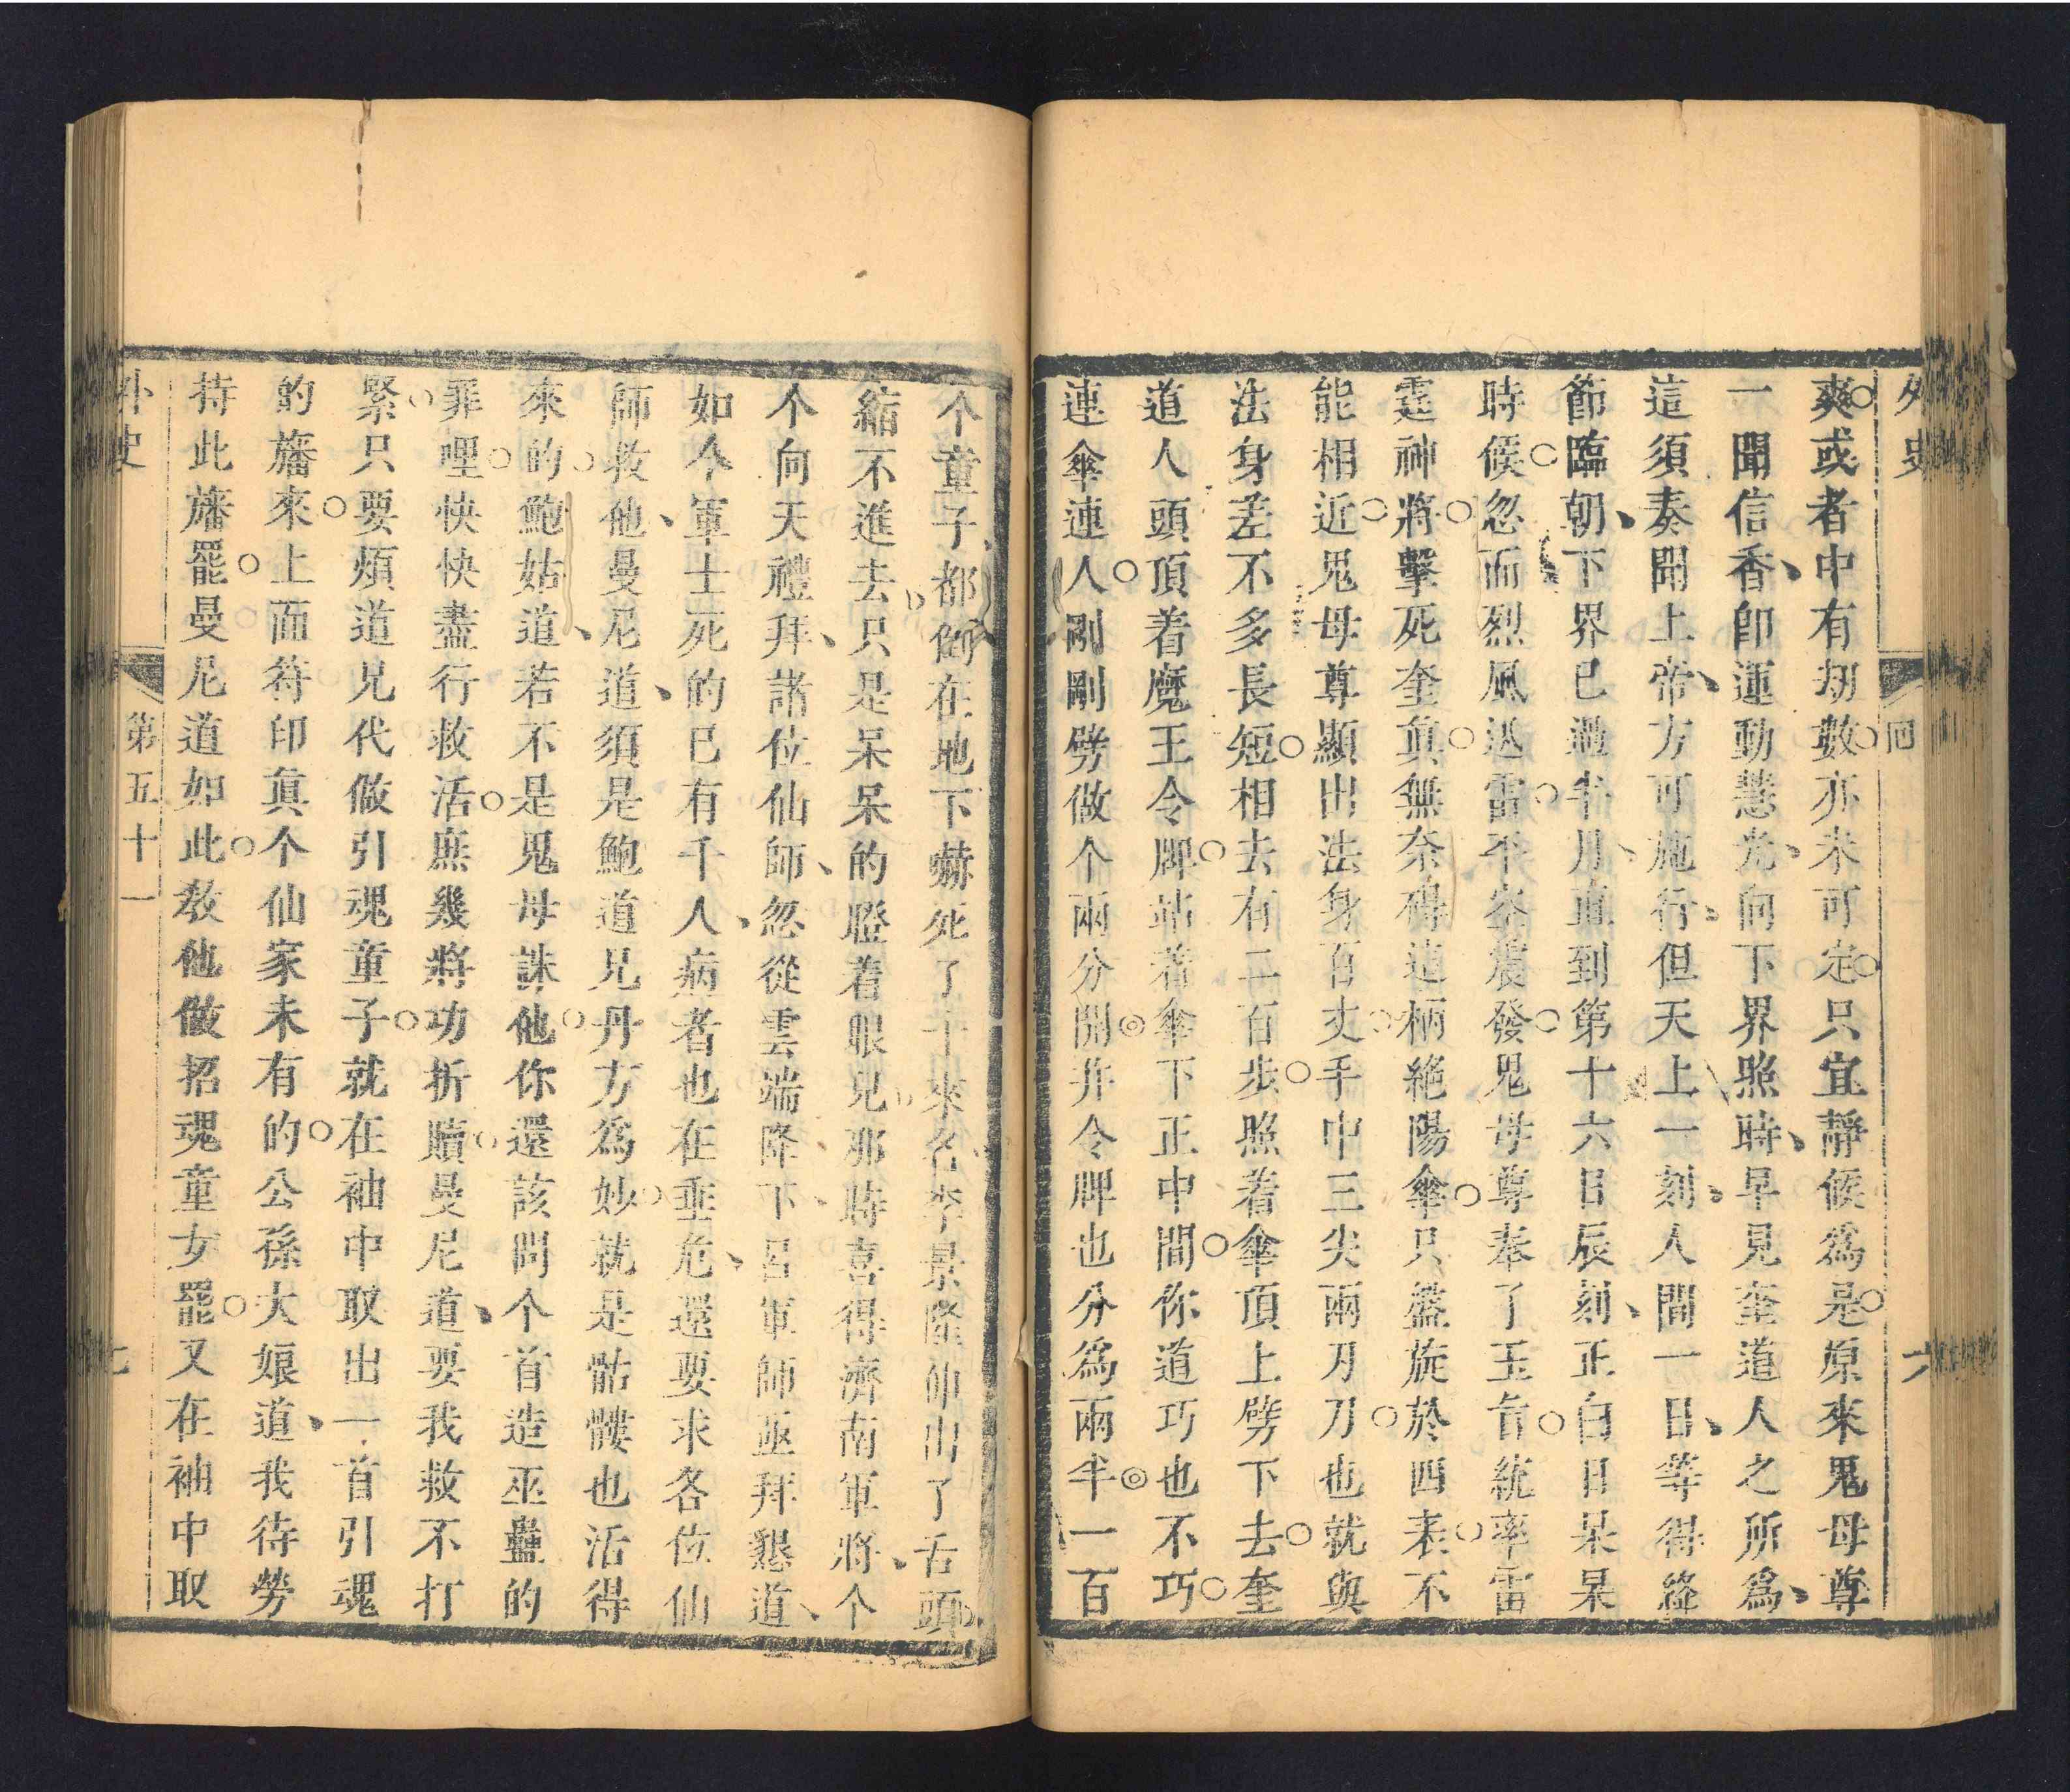 外史
回
六
爽或者中有刼數亦未可定只宜靜候爲是原來鬼母尊
一聞信香卽運動慧光向下界照時早見奎道人之所爲
這須奏聞上帝方可施行但天上一刻人間一日等得
節臨朝下界已過半月直到第十六日辰刻正白日杲杲
時候忽而烈風迅雷平空震發鬼母尊奉了玉旨統率雷
霆神將擊死奎眞無奈碍這柄絕陽傘只盤旋於四表不
能相近鬼母尊顯出法身百丈手中三尖兩刃刀也就與
法身差不多長短相去有二百步照着傘頂上劈下去奎
道人頭頂着魔王令牌站着傘下正中間你道巧也不巧
連傘連人剛剛劈做个兩分開并令牌也分爲兩半一百
个童子都倒在地下嚇死了十來名李景隆伸出了舌頭
縮不進去只是呆呆的瞪着眼兒那時喜得濟南軍將个
个向天禮拜諸位仙師忽從雲端降下呂軍師亟拜懇道
如今軍士死的已有千人病者也在垂危還要求各位仙
師救他曼尼道須是鮑道兄丹方爲妙就是骷髏也活得
來的鮑姑道若不是鬼母誅他你還該問个首造巫蠱的
罪哩快快盡行救活庶幾將功折贖曼尼道要我救不打
緊只要煩道兄代做引魂童子就在袖中取出一首引魂
的旛來上面符印眞个仙家未有的公孫大娘道我待勞
持此旛罷曼尼道如此敎他做招魂童女罷又在袖中取
外史
第五十一
七